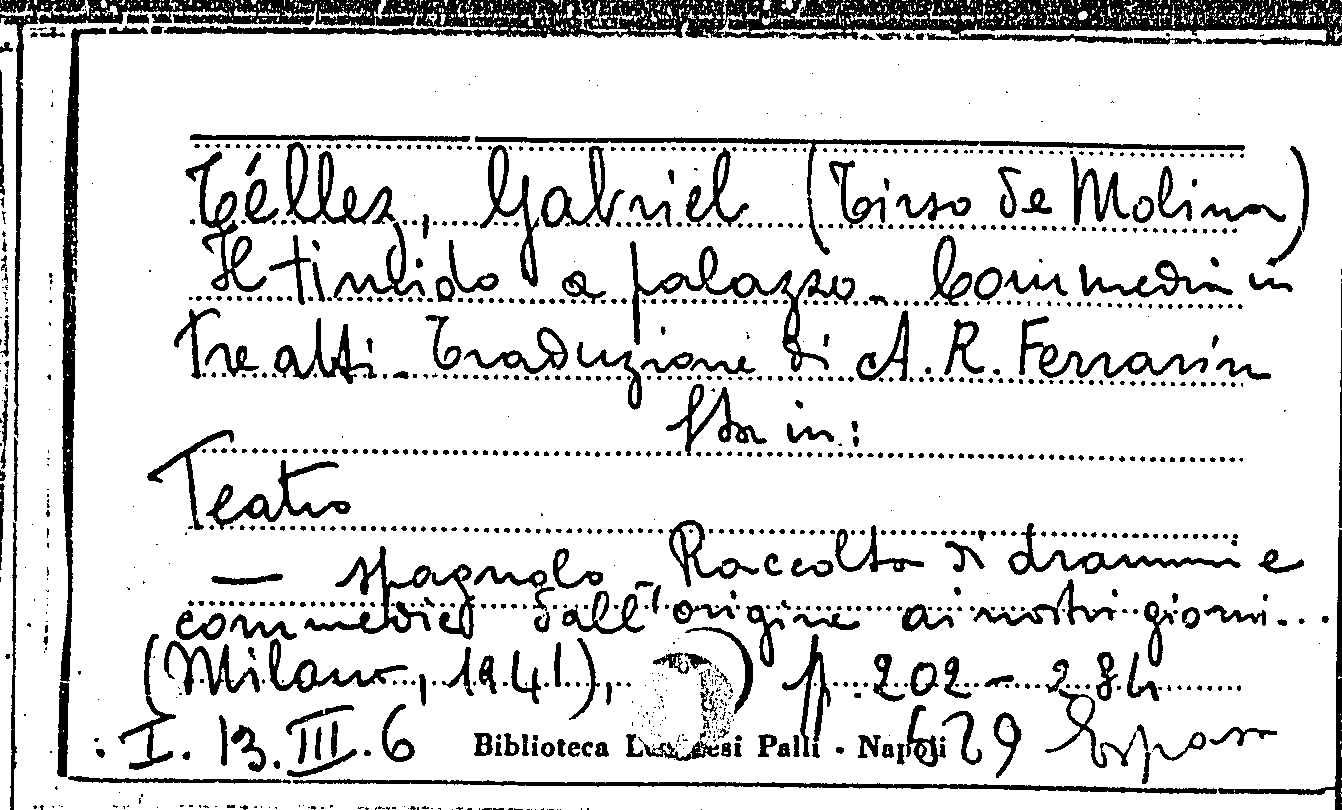 Téllez, Gabriel (Tirso de Molina)
Il timido a palazzo. Commedia in
tre atti. Traduzione di A. R. Ferrarin
Sta in:
Teatro
— spagnolo. Raccolta di drammi e
commedie dall'origine ai nostri giorni...
(Milano, 1941), p. 202-284
I. 13. III. 6 629
Biblioteca Lucchesi Palli - Napoli